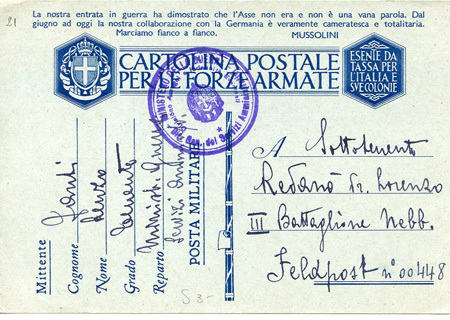 21
La nostra entrata in guerra ha dimostrato che l'Asse non era e non è una vana parola. Dal
giugno ad oggi la nostra collaborazione con la Germania è veramente cameratesca e totalitaria.
Marciamo fianco a fianco. MUSSOLINI
CARTOLINA POSTALE
PER LE FORZE ARMATE
ESENTE DA
TASSA PER
L'ITALIA E
SVE COLONIE
A Sottotenente
Redanò Dr. Lorenzo
III Battaglione Nebb.
Feldpost n° 00448
Mittente
Cognome
Nome Renzo
Grado
Reparto
POSTA MILITARE
S 3-